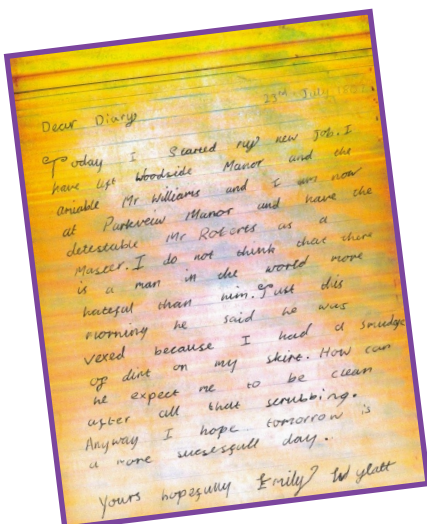 23rd July
Dear Diary
Today I Started my new Job. I
have left Woodside Manor and the
amiable Mr Williams and I am now
at Parkveiw Manor and have the
detestable Mr Roberts as a
Master. I do not think that there
is a man in the world more
hateful than him. Just this
morning he said he was
vexed because I had a smudge
of dirt on my skirt. How can
he expect me to be clean
after all that scrubbing.
Anyway I hope tomorrow is
a more sucessfull day..
Yours hopefully Emily